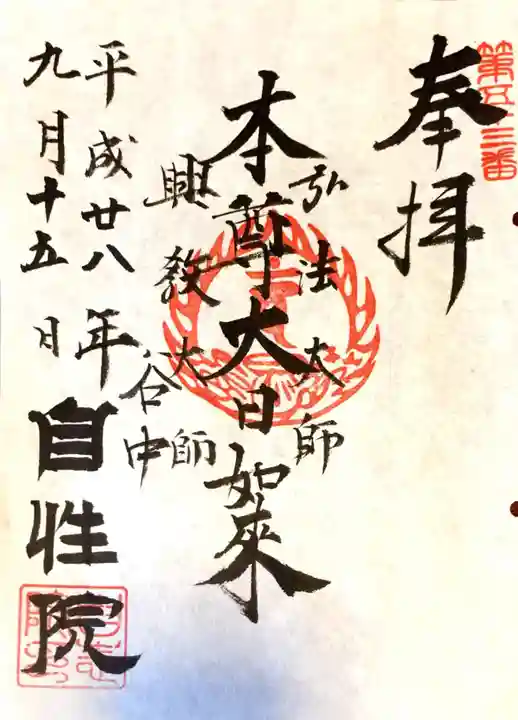 第五十三番
奉拝
弘法大師
本尊大日如来
興教大師
谷中
平成廿八年
九月十五日
自性院